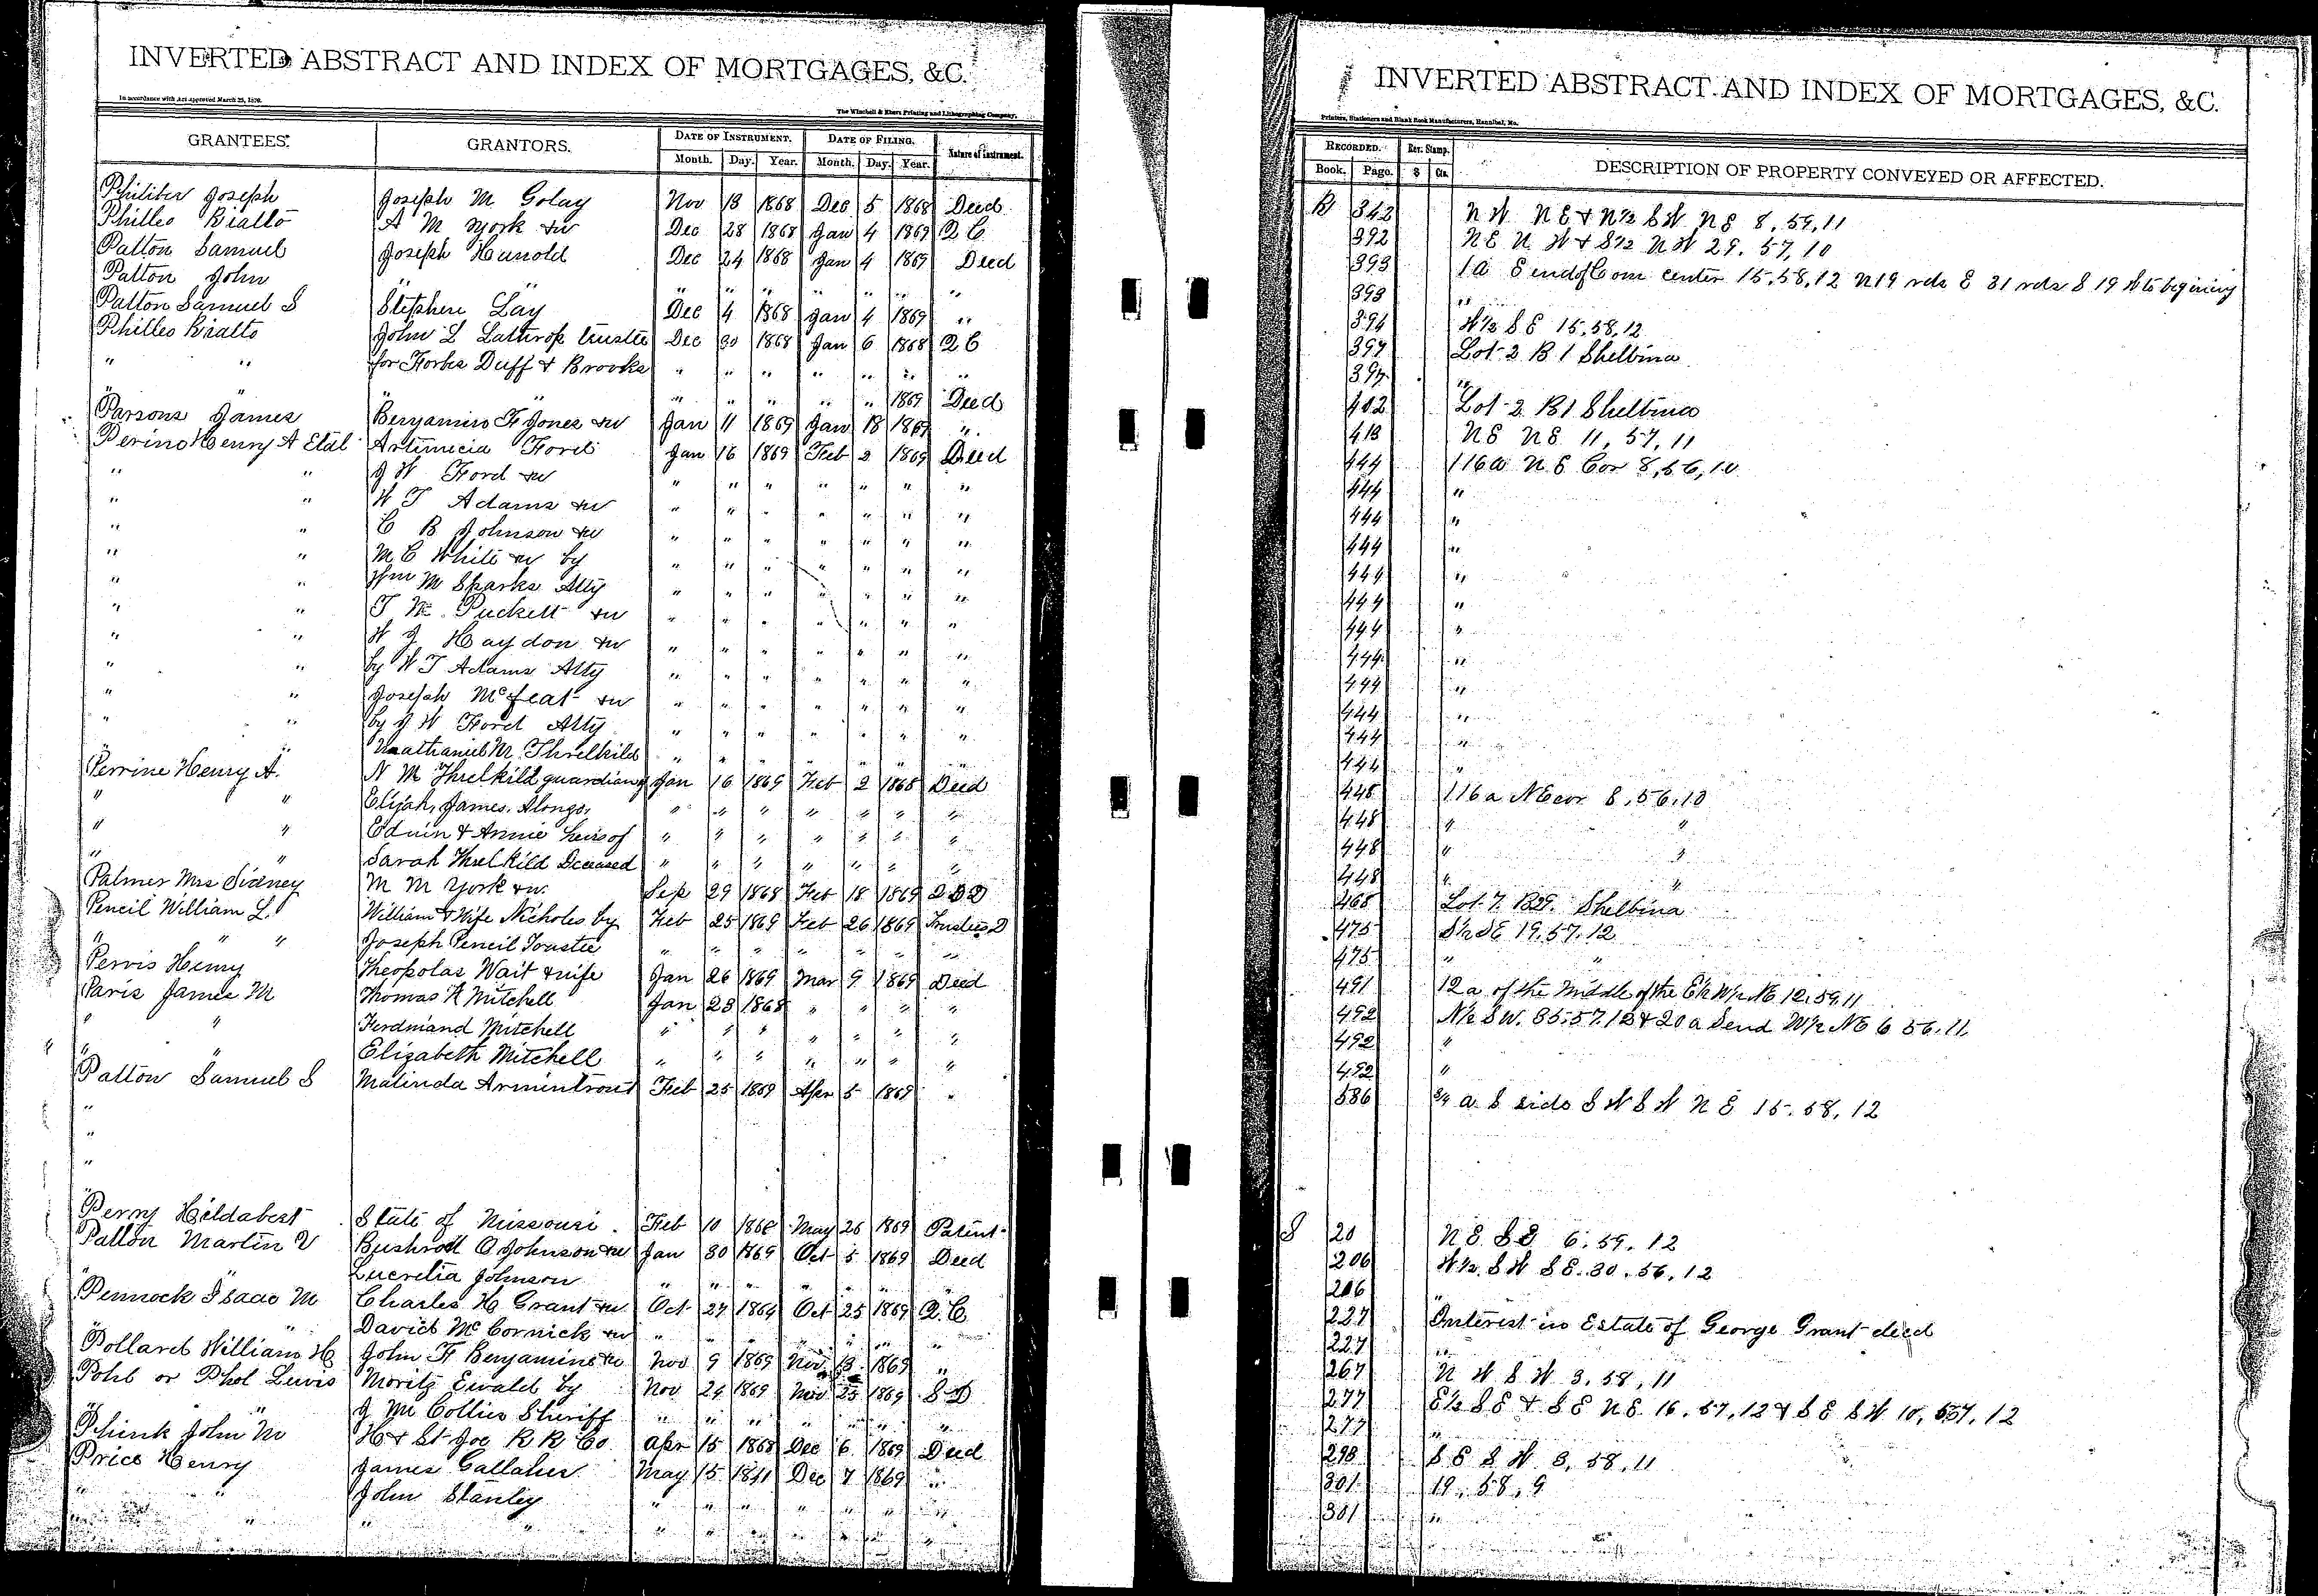 INVERTED ABSTRACT AND INDEX OF MORTGAGES, &C.
In accordance with Act Approved March 25, 1870.
The Winchell & Ebert Printing and Lithographing Company,
GRANTEES. GRANTORS. DATE OF INSTRUMENT. DATE OF FILING. Nature of instrument.
Month. Day. Year. Month. Day. Year.
Philiber Joseph Joseph M Golay Nov 13 1868 Dec 5 1868 Deed
Philleo Rialto A M York &w Dec 28 1868 Jan 4 1869 Q C
Patton Samuel Joseph Hunold Dec 24 1868 Jan 4 1869 Deed
Patton John " " " " " " " "
Patton Samuel S Stephen Lay Dec 4 1868 Jan 4 1869 "
Philleo Rialto John L Lathrop trustee Dec 30 1868 Jan 6 1868 Q C
" " for Forbes Duff & Brooks " " " " " " "
" " " " " " " 1869 Deed
Parsons James Benjamin F Jones &w Jan 11 1869 Jan 18 1869 "
Perine Henry A Etal Artimicia Ford Jan 16 1869 Feb 2 1869 Deed
" " J W Ford &w " " " " " " "
" " W T Adams &w " " " " " " "
" " C B Johnson &w " " " " " " "
" " M. C White &w by " " " " " " "
" " Wm M Sparks Atty " " " " " " "
" " T W Puckett &w " " " " " " "
" " W J Haydon &w " " " " " " "
" " by W T Adams Atty " " " " " " "
" " Joseph McLeat &w " " " " " " "
" " by J W Ford Atty " " " " " " "
" " Nathaniel M. Threlkild " " " " " " "
Perrine Henry A. N M Threlkild guardian of Jan 16 1869 Feb 2 1868 Deed
" " Elijah, James, Alongo, " " " " " " "
" " Eduin & Annie heirs of " " " " " " "
" " Sarah Threlkild Deceased " " " " " " "
Palmer Mrs Sidney M M York &w. Sep 29 1868 Feb 18 1869
Pencil William L. William & Wife Nicholes by Feb 25 1869 Feb 26 1869 Trustees D
" " " Joseph Pencil Trustee " " " " " " "
Pervis Henry Theopolas Wait & wife Jan 26 1869 Mar 9 1869 Deed
Paris James M Thomas K Mitchell Jan 23 1868 " " " "
" " Ferdinand Mitchell " " " " " " "
" " Elizabeth Mitchell " " " " " " "
Patton Samuel S Malinda Armentrout Feb 25 1869 Apr 5 1869 "
"
"
"
Perry Hildabest State of Missouri Feb 10 1868 May 26 1869 Patent
Patton Martin V Bushrod O Johnson &w Jan 30 1869 Oct 5 1869 Deed
" " Lucretia Johnson " " " " " " "
Pennock Isaac M Charles H Grant &w Oct 27 1864 Oct 25 1869 Q. C
" " David McCornick &w " " " " " " "
Pollard William H John F Benjamin &w Nov 9 1869 Nov 13 1869 "
Pohl or Phol Lewis Moritz Ewald by Nov 24 1869 Nov 25 1869 S D
" " J M Collier Sheriff " " " " " " "
Phink John M H & St Joe R R Co Apr 15 1868 Dec 6 1869 Deed
Price Henry James Gallaher May 15 1841 Dec 7 1869 "
" " John Stanley " " " " " " "
" " " " " " " " " " "
INVERTED ABSTRACT AND INDEX OF MORTGAGES, &C.
Printers, Stationers and Blank Book Manufacturers, Hannibal, Mo.
RECORDED. Rev. Stamp. DESCRIPTION OF PROPERTY CONVEYED OR AFFECTED.
Book. Page. $ Cts.
R 342 N W N E & N½ S W N E 8, 59, 11
392 N E N W & S½ N W 29, 57, 10
393 1 a S end of Com center 15, 58, 12 N 19 rds E 31 rds S 19 W to begining
393 "
394 W½ S E 15, 58, 12
397 Lot 2 B 1 Shelbina
397 "
402 Lot 2 B 1 Shelbina
413 N E N E 11, 57, 11
444 116 a N. E Cor 8, 56, 10
444 "
444 "
444 "
444 "
444 "
444 "
444 "
444 "
444 "
444 "
444 "
448 116 a NE cor 8, 56, 10
448 " "
448 " "
448 " "
468 Lot 7. B 29. Shelbina
475 S½ SE 19. 57. 12
475 " "
491 12 a of the Middle of the E½ W½ NE 12, 59, 11
492 N½ SW. 35. 57. 12 & 20 a S end W½ NE 6 56, 11,
492 "
492 "
586 ¾ a. S side S W S W N E 15. 58, 12
S 20 N E S E 6. 59. 12
206 W½ S W S E. 30. 56, 12
206 "
227 Interest in Estate of George Grant decd
227 "
267 N W S W 3, 58, 11
277 E½ S E & S E N E 16, 57, 12 & S E S W 10, 57, 12
277 "
298 S E S W 3, 58, 11
301 19, 58, 9
301 "